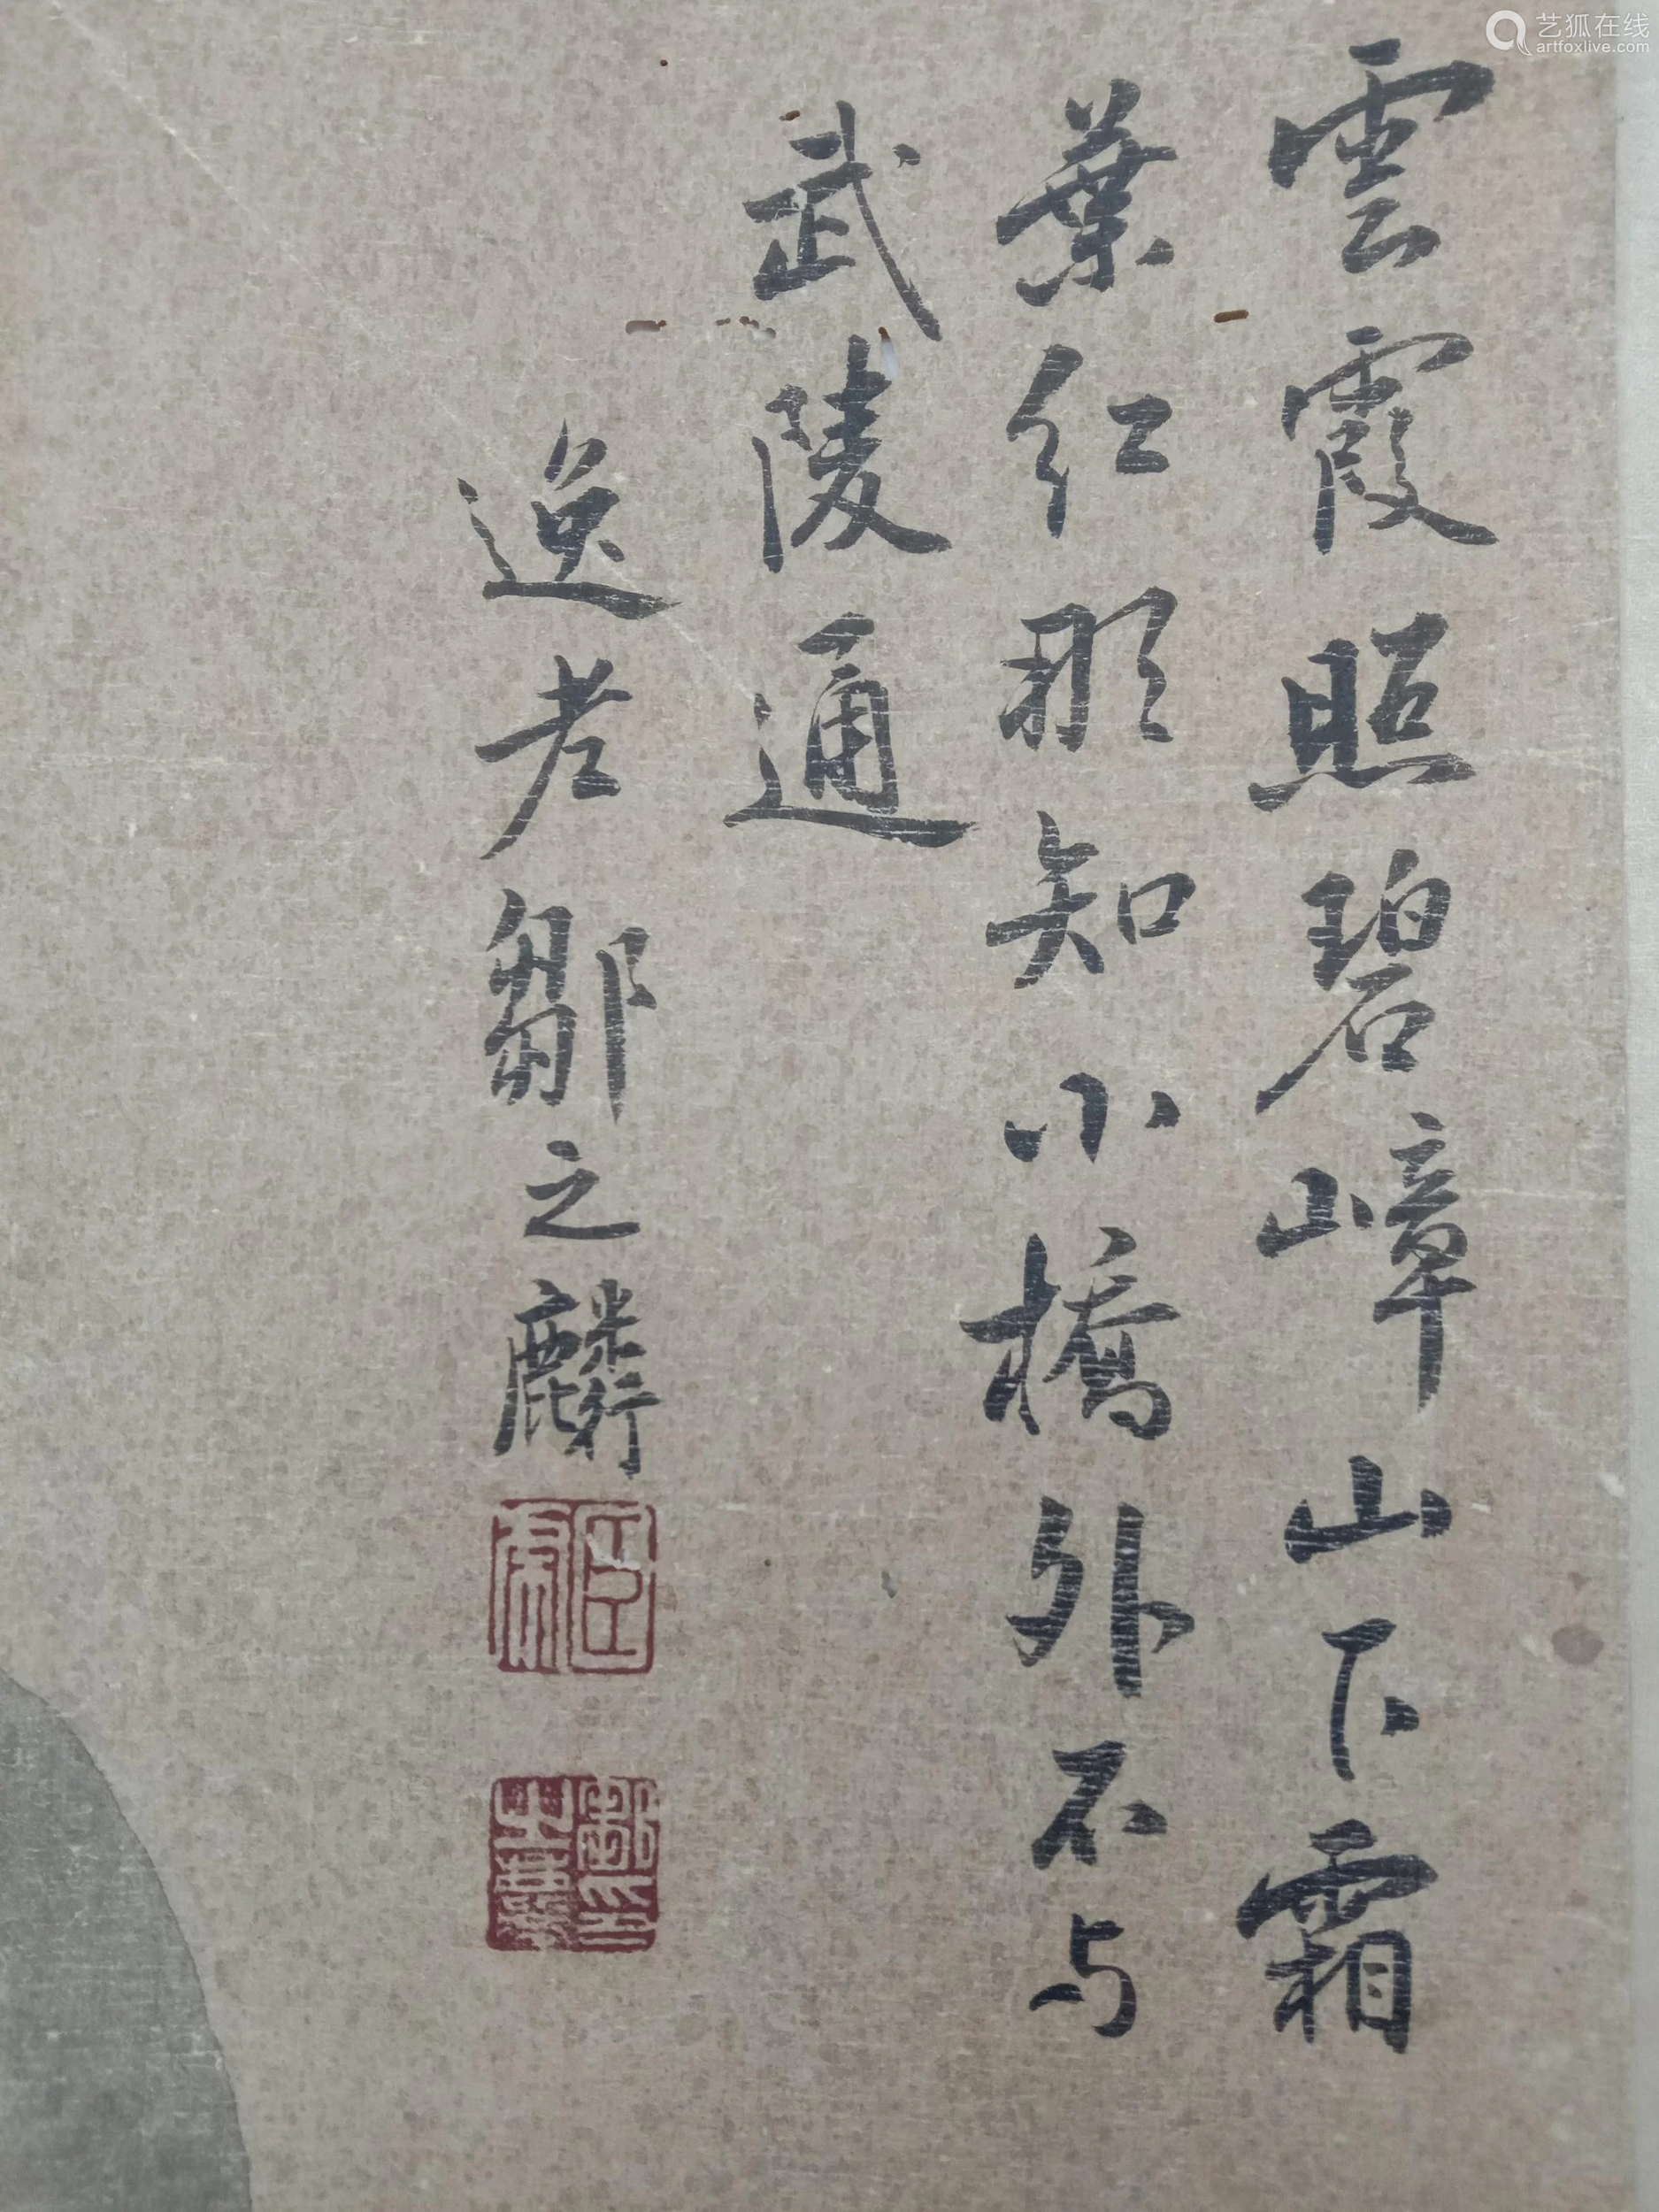 雲霞照碧嶂山下霜
葉红那知小橋外不与
武陵通
逸老鄒之麟
艺狐在线
artfoxlive.com